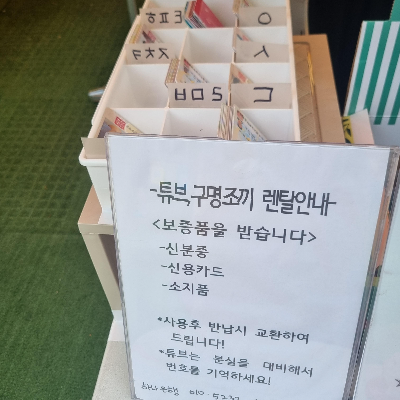 ㅍㅎ
ㅇ
ㅈㅊㅋ
ㅅ
ㄹㅁㅂ
ㄷ
-튜브,구명조끼 렌탈안내-
<보증품을 받습니다>
-신분증
-신용카드
-소지품
*사용후 반납시 교환하여
드립니다!
*튜브는 분실을 대비해서
번호를 기억하세요!